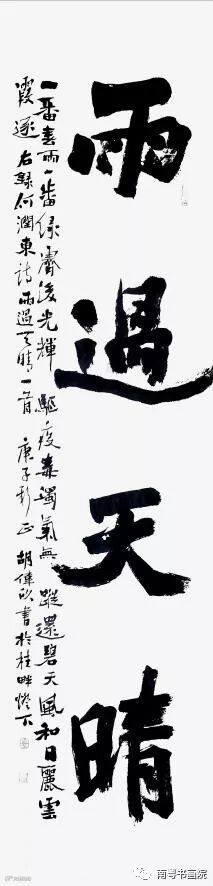 雨過天晴
一番春雨一番緑霽後光輝驅疫毒濁氣無蹤還碧天風和日麗雲
霞逐 右録何潤東詩雨過天晴一首 庚子新正 胡 書於桂畔燈下
南粤书画院